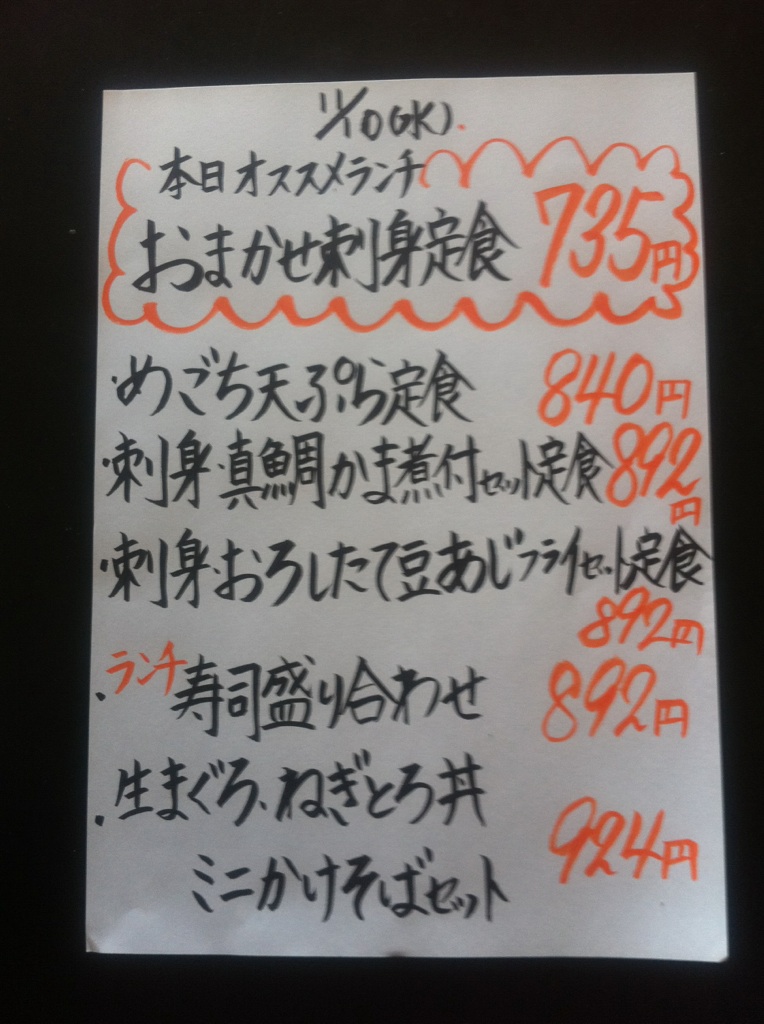 11/10(水).
本日オススメランチ
おまかせ刺身定食 735円
・めごち天ぷら定食 840円
・刺身・真鯛かま煮付セット定食 892円
・刺身・おろしたて豆あじフライセット定食
892円
・ランチ寿司盛り合わせ 892円
・生まぐろ、ねぎとろ丼
ミニかけそばセット 924円